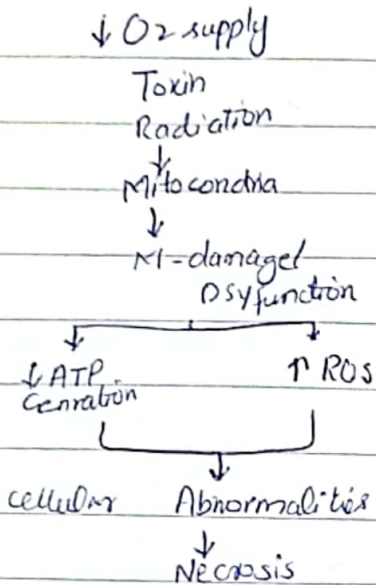 ↓ O2 supply
Toxin
Radiation
↓
Mitocondria
↓
M-damage/
Dsyfunction
↓ ↓
↓ ATP ↑ ROS
Cenration
↓
cellular Abnormalities
↓
Necrosis